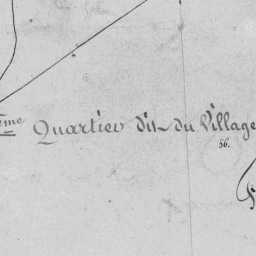 eme Quartier dit du Village
56.